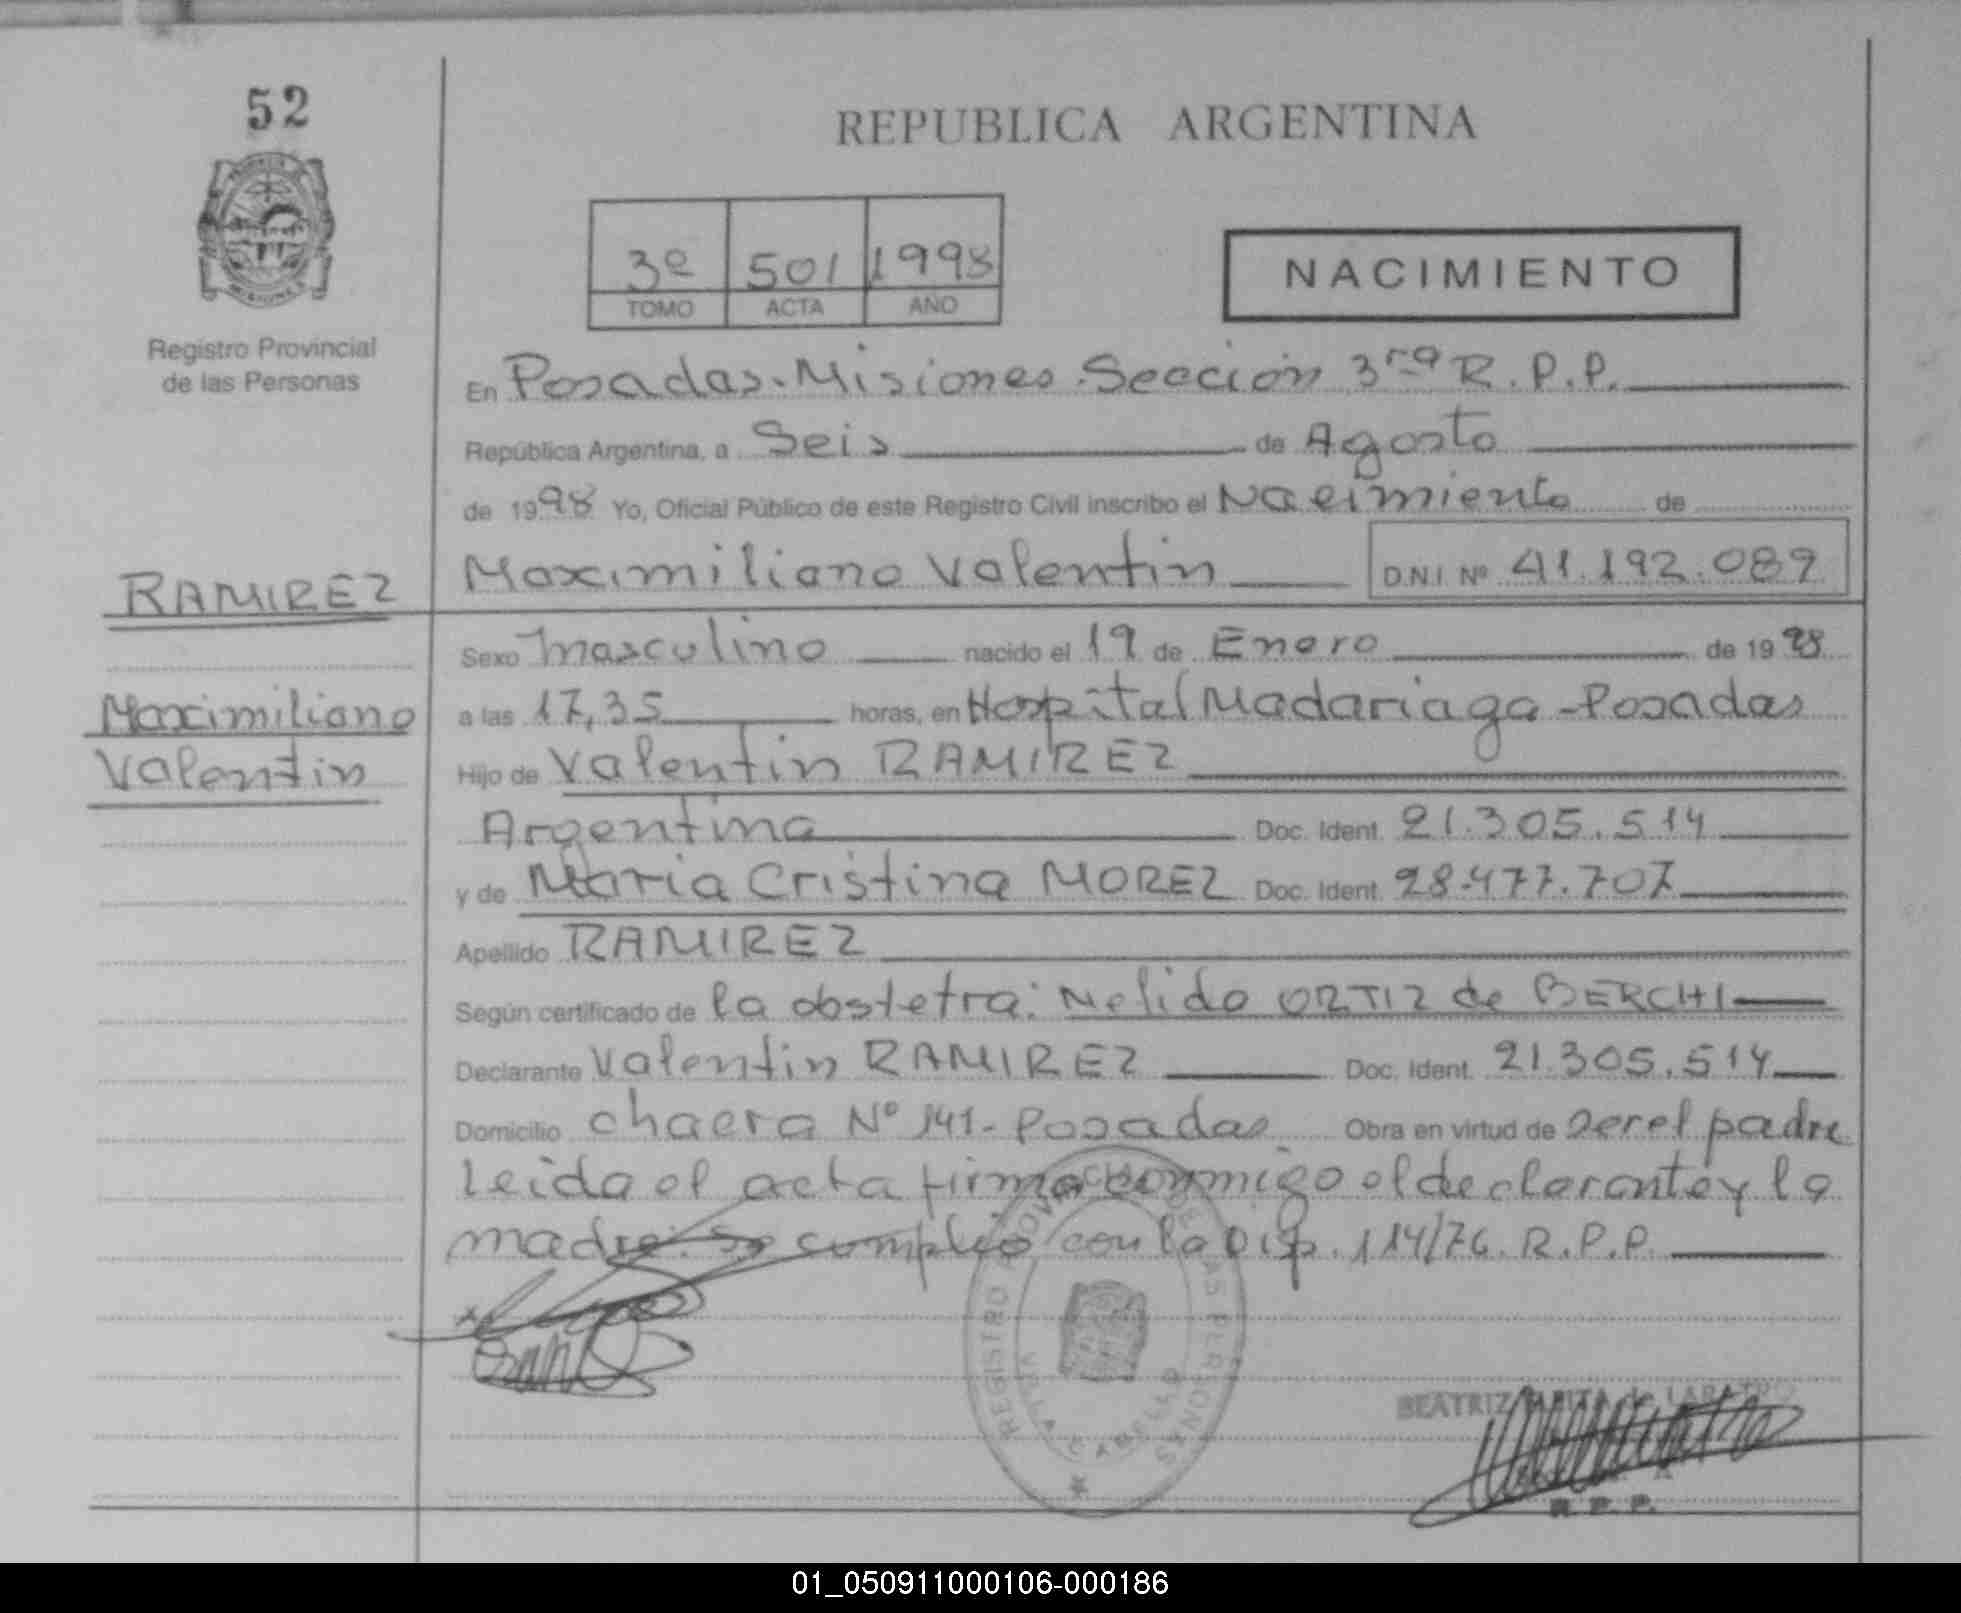 52
REPUBLICA ARGENTINA
3º 501 1998
TOMO ACTA AÑO
NACIMIENTO
Registro Provincial
de las Personas
En Posadas.Misiones.Sección 3ra R.P.P.
República Argentina, a Seis de Agosto
de 1998 Yo, Oficial Público de este Registro Civil inscribo el Nacimiento de
Maximiliano Valentin D.N.I. Nº 41.192.089
RAMIREZ
Sexo masculino nacido el 19 de Enero de 1998
Maximiliano
a las 17,35 horas, en Hospital Madariaga-Posadas
Valentin
Hijo de Valentin RAMIREZ
Argentina Doc. Ident. 21.305.514
y de Maria Cristina MOREZ Doc. Ident. 28.477.707
Apellido RAMIREZ
Según certificado de la obstetra: Nelida ORTIZ de BERCHI
Declarante Valentin RAMIREZ Doc. Ident. 21.305.514
Domicilio chacra Nº 141-Posadas Obra en virtud de ser el padre
Leida el acta firma conmigo el declarante y la
madre. Se cumplió con la Disp. 114/76. R.P.P.
REGISTRO PROVINCIAL DE LAS PERSONAS
VILLA CABELLO
BEATRIZ de
R.P.P.
01_050911000106-000186